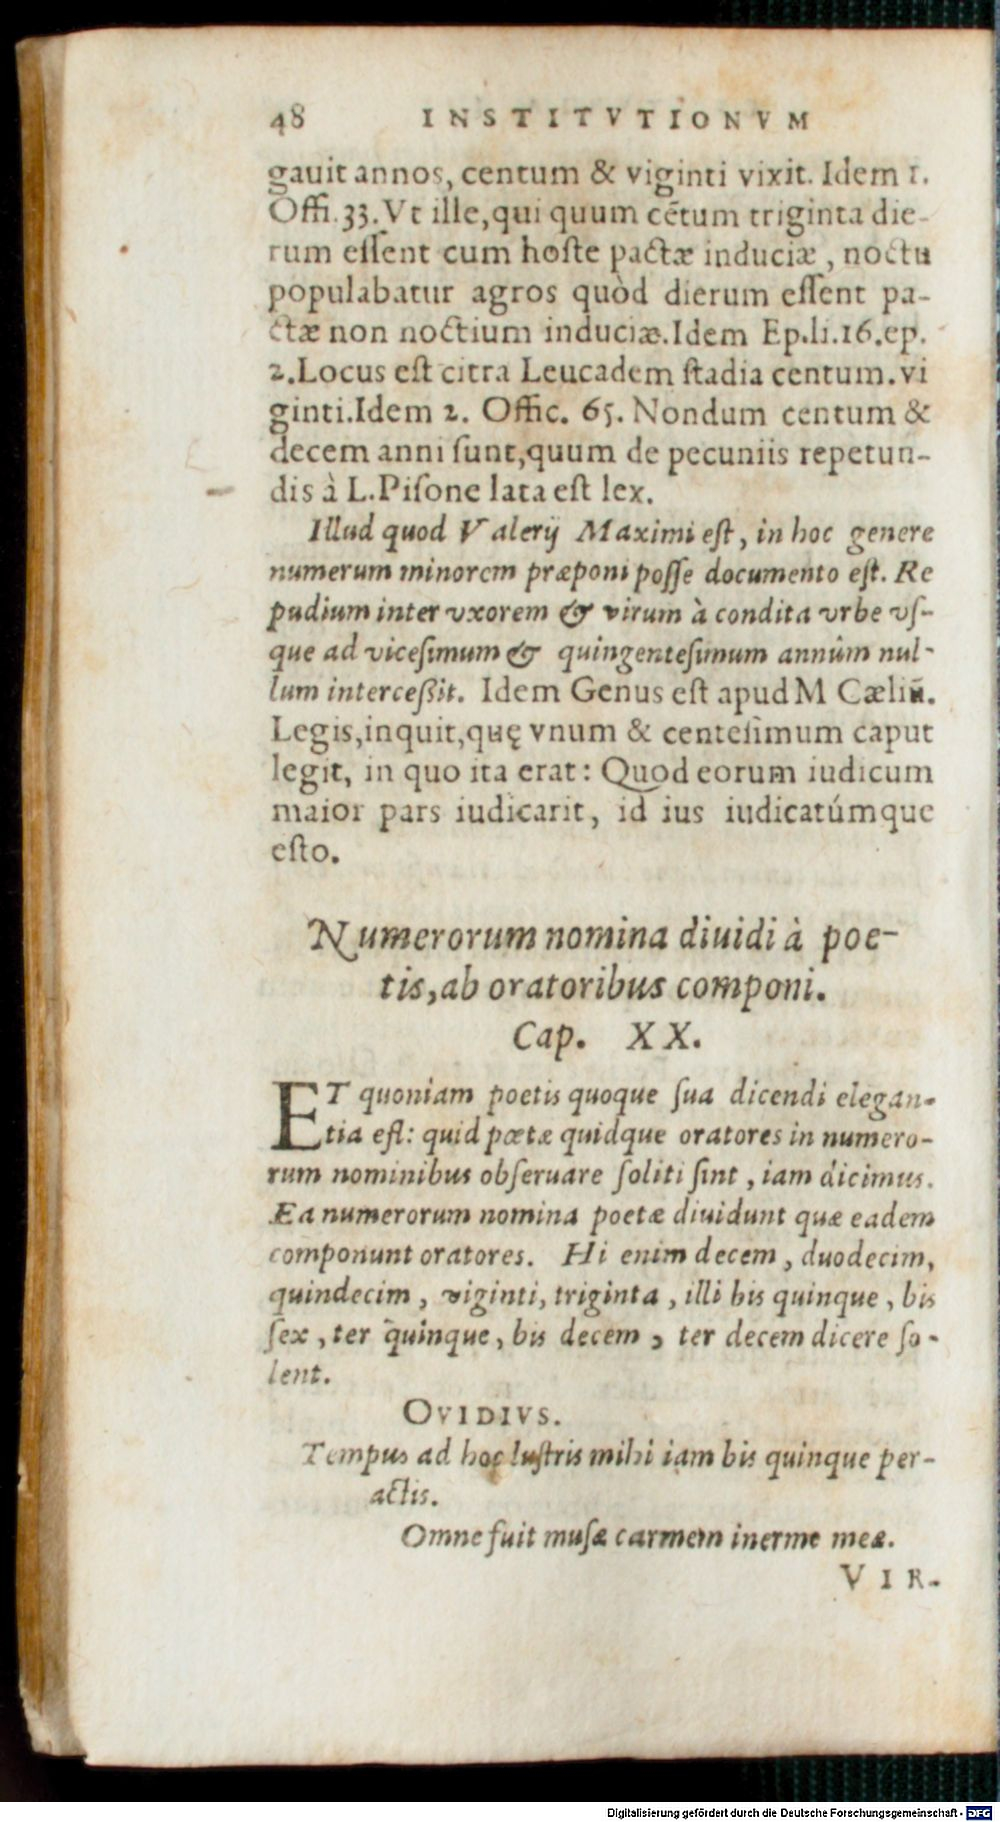 48 INSTITVTIONVM
gauit annos, centum & viginti vixit. Idem 1.
Offi.33.Vt ille,qui quum cẽtum triginta die-
rum eſſent cum hoſte pactæ induciæ, noctu
populabatur agros quòd dierum eſſent pa-
ctæ non noctium induciæ.Idem Ep.li.16.ep.
2.Locus eſt citra Leucadem ſtadia centum.vi
ginti.Idem 2. Offic. 65. Nondum centum &
decem anni ſunt,quum de pecuniis repetun-
dis à L.Piſone lata eſt lex.
Illud quod Valerij Maximi eſt, in hoc genere
numerum minorem præponi poſſe documento eſt. Re
pudium inter vxorem & virum à condita vrbe vſ-
que ad viceſimum & quingenteſimum annum nul-
lum interceßit. Idem Genus eſt apud M Cæliũ.
Legis,inquit,quę vnum & centeſimum caput
legit, in quo ita erat: Quod eorum iudicum
maior pars iudicarit, id ius iudicatúmque
eſto.
Numerorum nomina diuidi à poe-
tis,ab oratoribus componi.
Cap. XX.
ET quoniam poetis quoque ſua dicendi elegan-
tia eſt: quid poetæ quidque oratores in numero-
rum nominibus obſeruare ſoliti ſint, iam dicimus.
Ea numerorum nomina poetæ diuidunt quæ eadem
componunt oratores. Hi enim decem, duodecim,
quindecim, viginti, triginta, illi bis quinque, bis
ſex, ter quinque, bis decem, ter decem dicere ſo-
lent.
OVIDIVS.
Tempus ad hoc luſtris mihi iam bis quinque per-
actis.
Omne fuit muſæ carmen inerme meæ.
VIR-
Digitalisierung gefördert durch die Deutsche Forschungsgemeinschaft - DFG